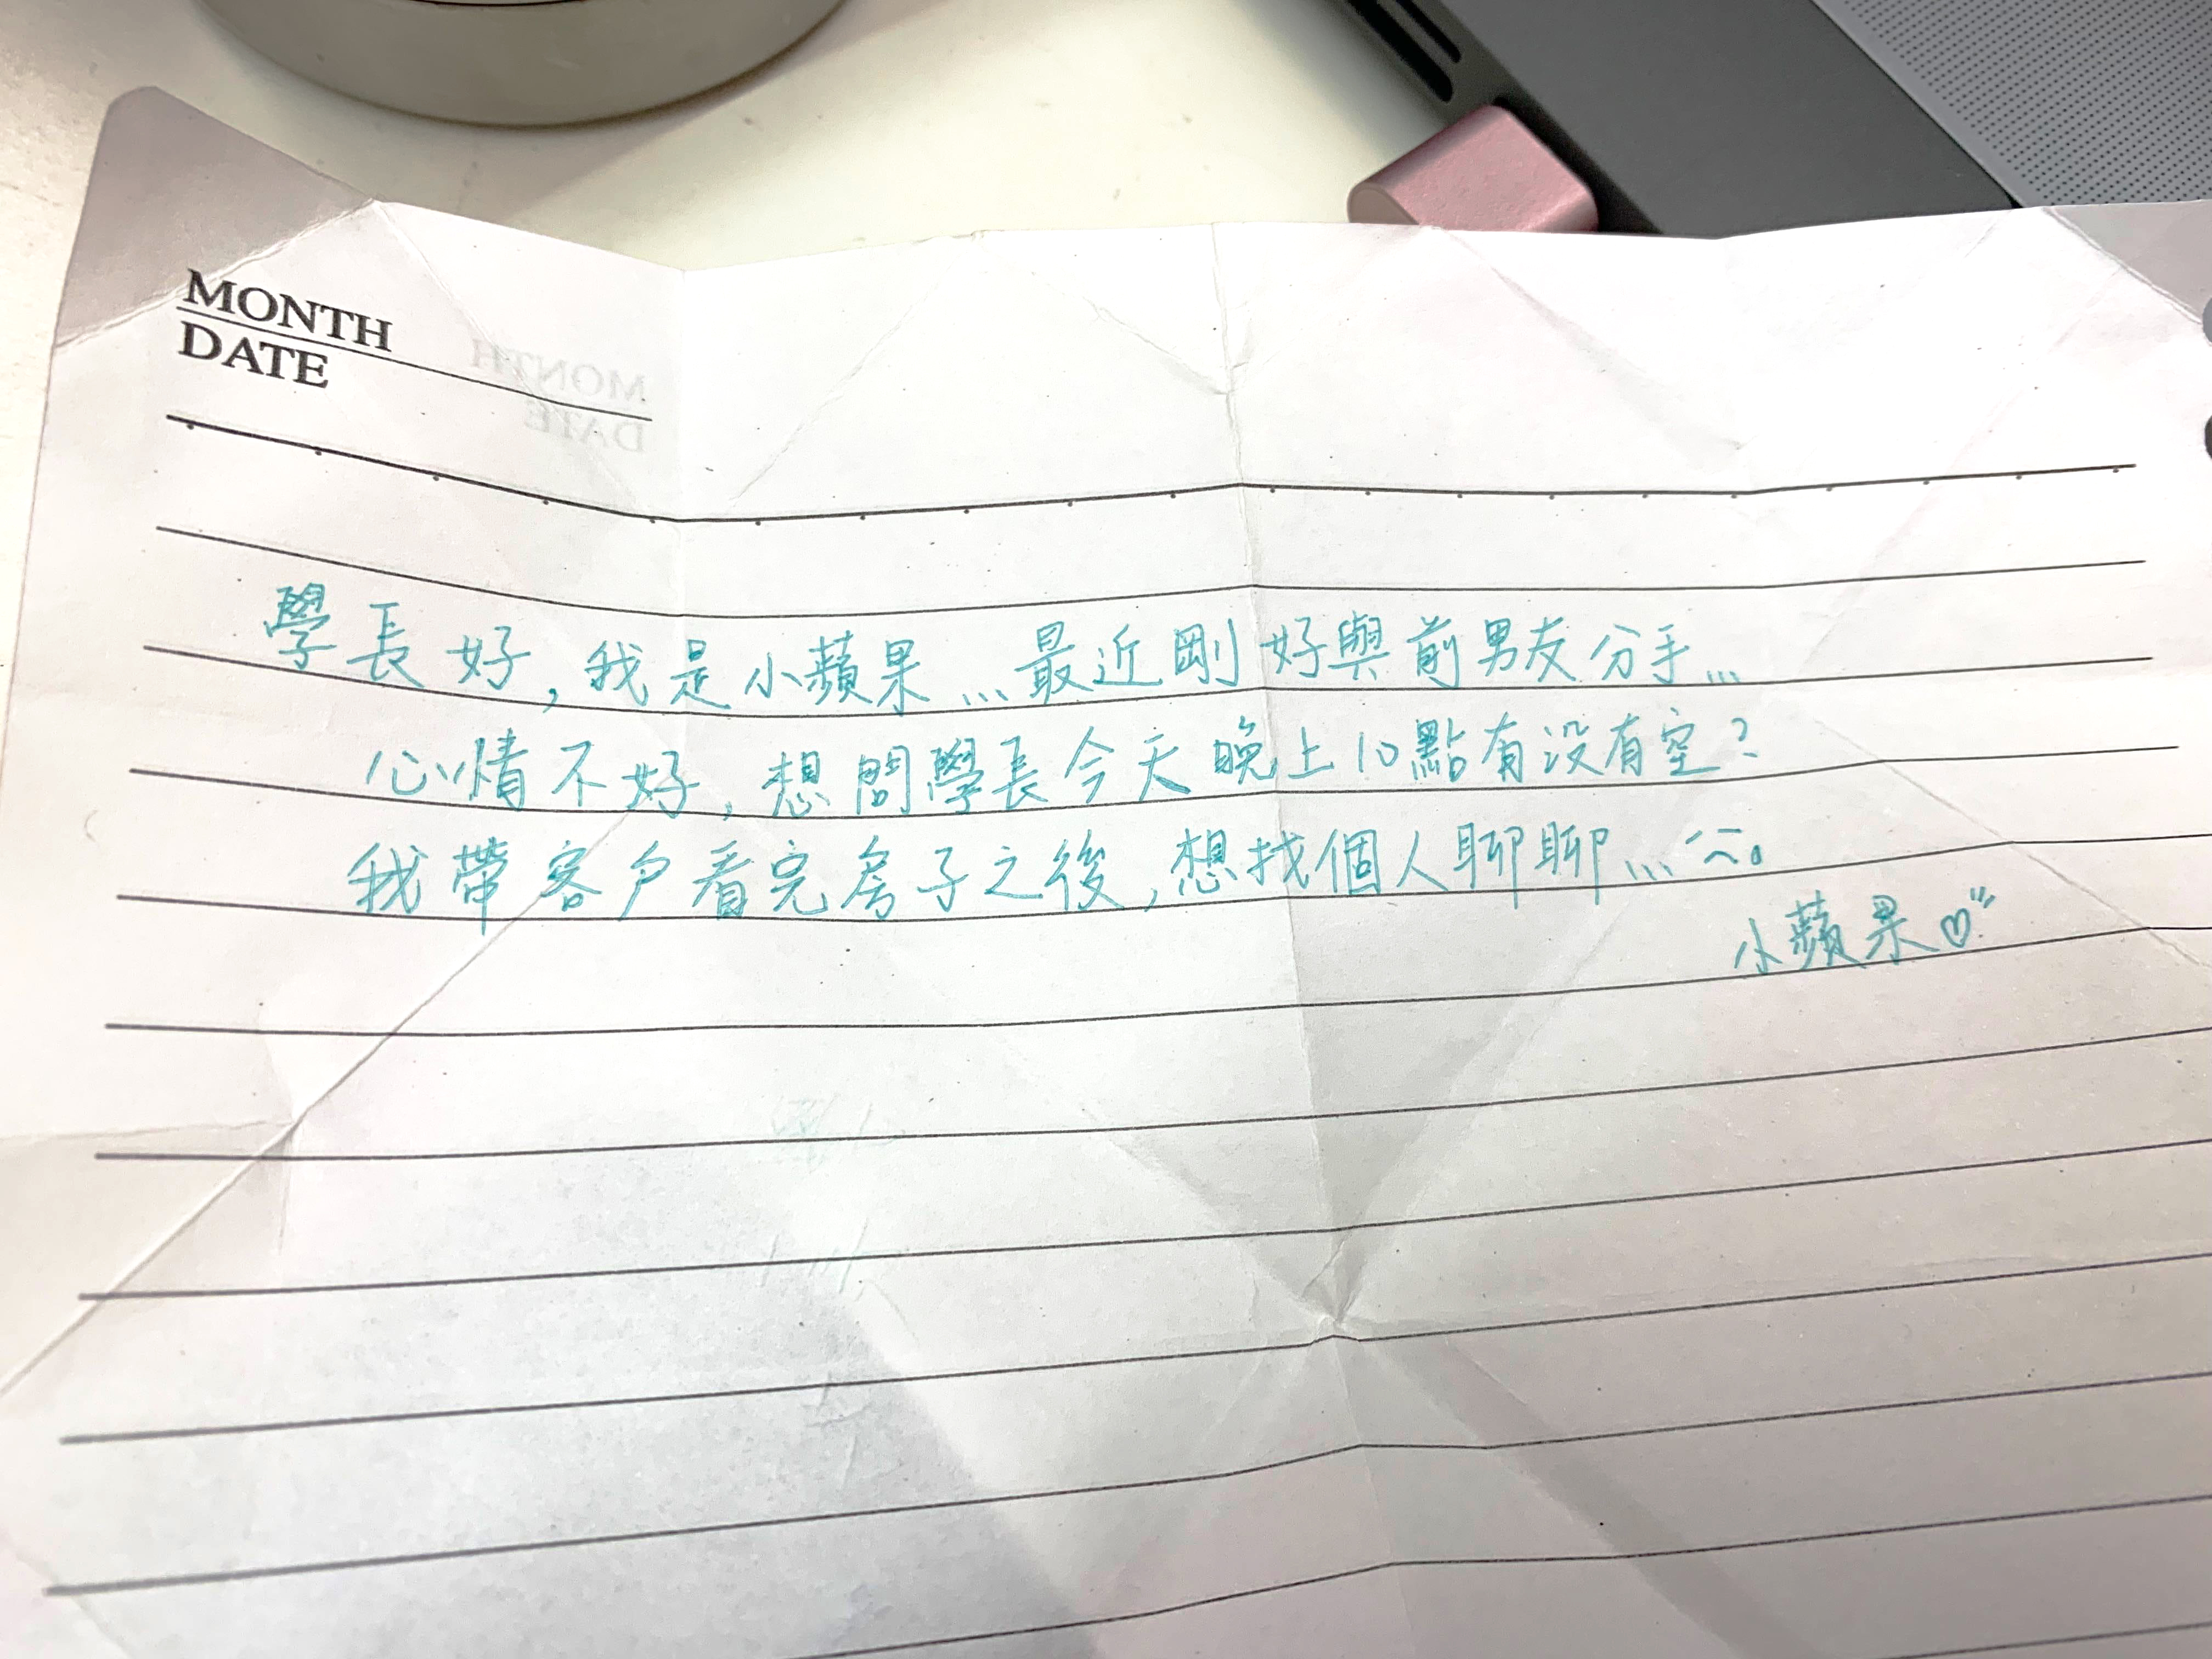 MONTH
DATE
學長好,我是小蘋果...最近剛好與前男友分手...
心情不好,想問學長今天晚上10點有没有空?
我帶客戶看完房子之後,想找個人聊聊...
小蘋果♡